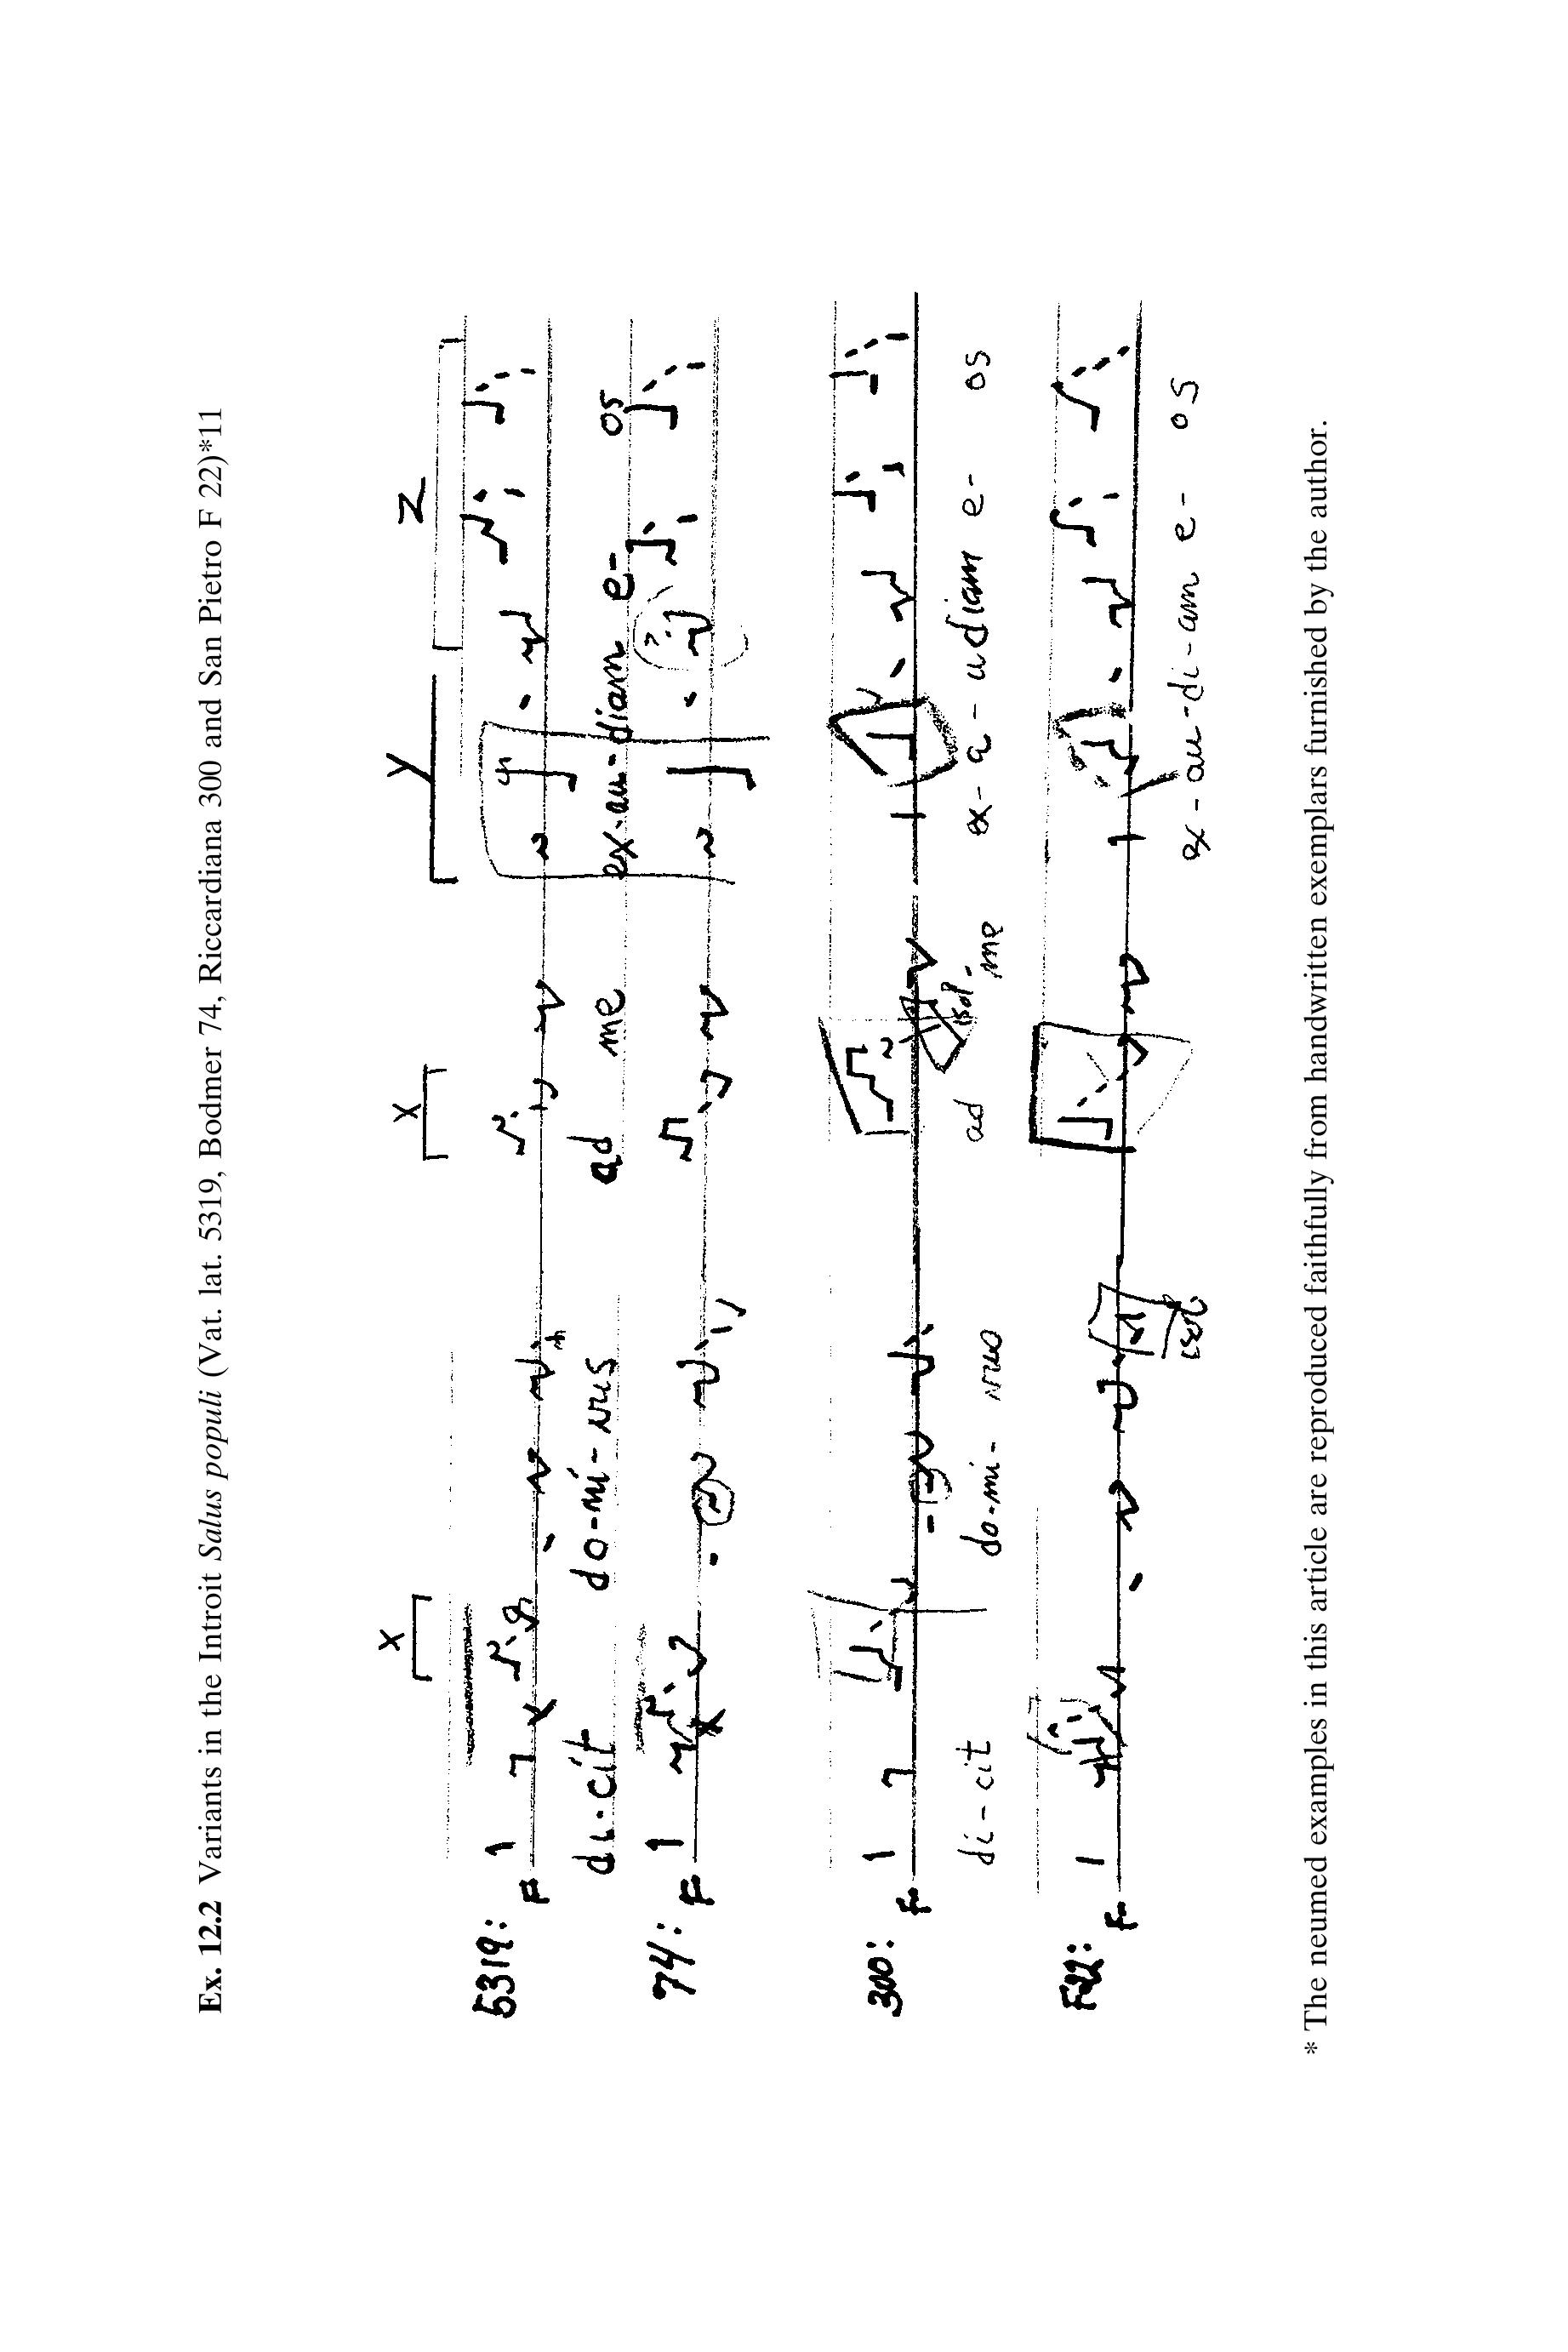 Ex. 12.2 Variants in the Introit Salus populi (Vat. lat. 5319, Bodmer 74, Riccardiana 300 and San Pietro F 22)*11
x x y z
5319:
F
di-cit do-mi-nus ad me ex-au-diam e- os
74:
F
x
?
300:
F
di-cit do-mi- ad me ex-a-udiam e- os
isol.
F22:
F
isol.
ex-au-di-am e- os
* The neumed examples in this article are reproduced faithfully from handwritten exemplars furnished by the author.